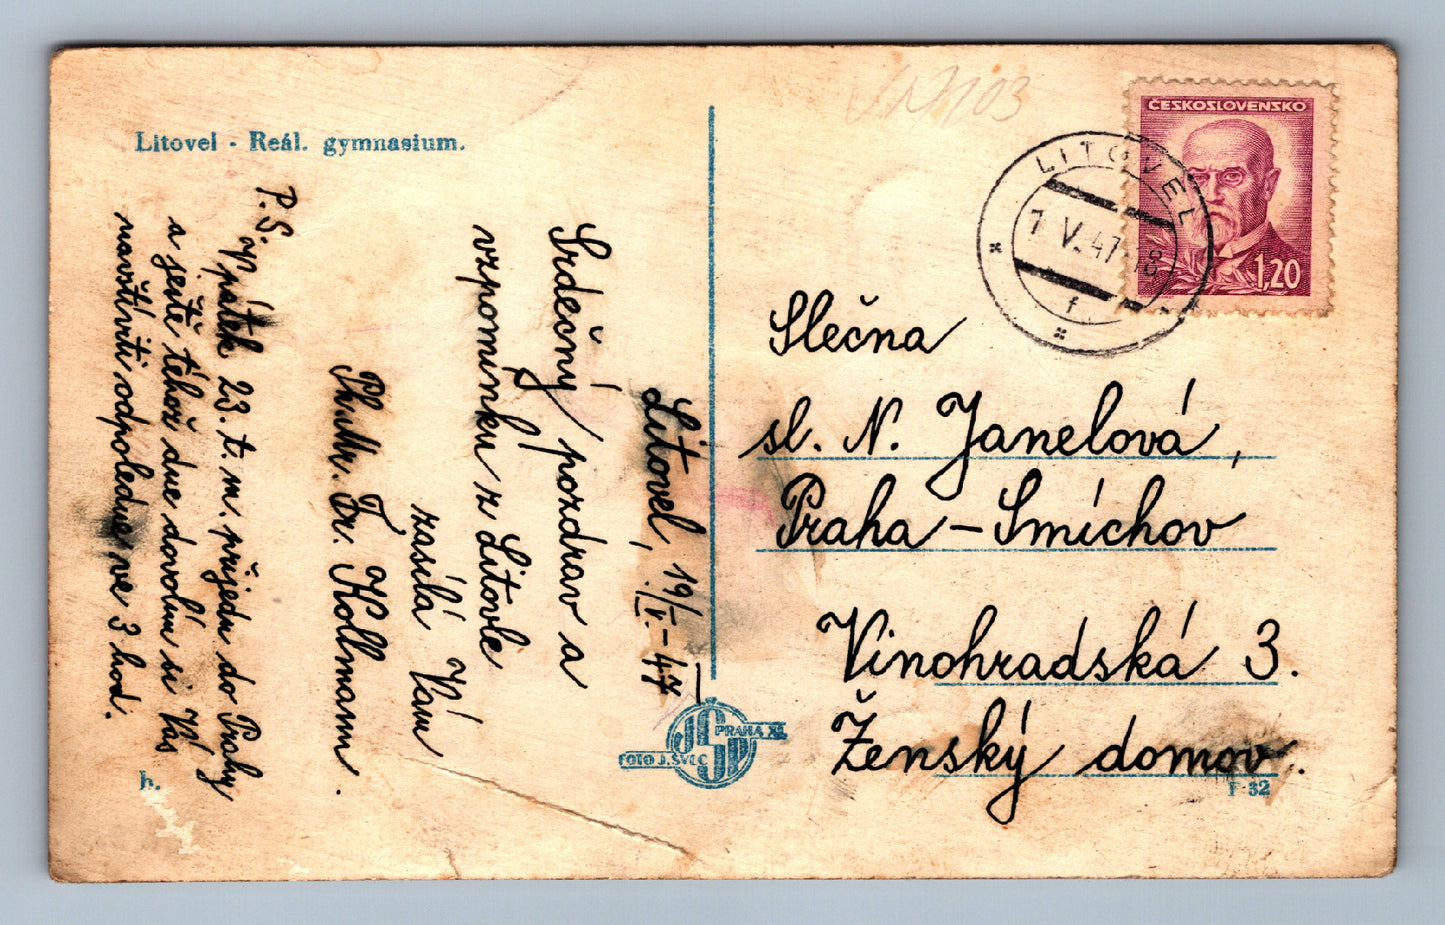 Litovel - Reál. gymnasium.
Litovel, 19/V.-47
Srdečný pozdrav a
vzpomínku z Litovle
zasílá Vám
Fr. Kollmann.
P.S. V pátek 23. t. m. přijedu do Prahy
a ještě téhož dne dovolím si Vás
navštíviti odpoledne ve 3 hod.
h.
FOTO J. ŠVEC
PRAHA XI.
ČESKOSLOVENSKO
1,20
LITOVEL
V. 47-18
f
Slečna
sl. N. Janelová,
Praha - Smíchov
Vinohradská 3.
Ženský domov.
F 32